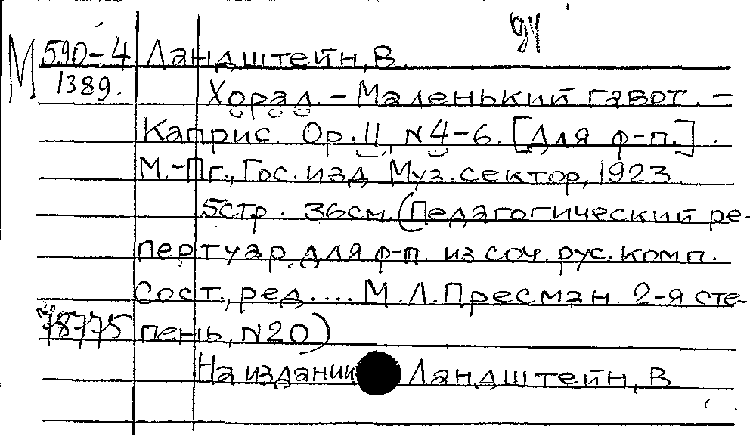 94
М 590-4 Ландштейн, В
1389. Хорал. – Маленький гавот. –
Каприс. Op. 11, N 4-6. [Для ф-п.].
М.-Пг., Гос. изд. Муз. сектор, 1923
5 стр. 36 см. (Педагогический ре-
пертуар для ф-п из соч. рус. комп.
Сост., ред. ... М. Л. Пресман 2-я сте-
78775 пень, N20)
На издании Ландштейн, В